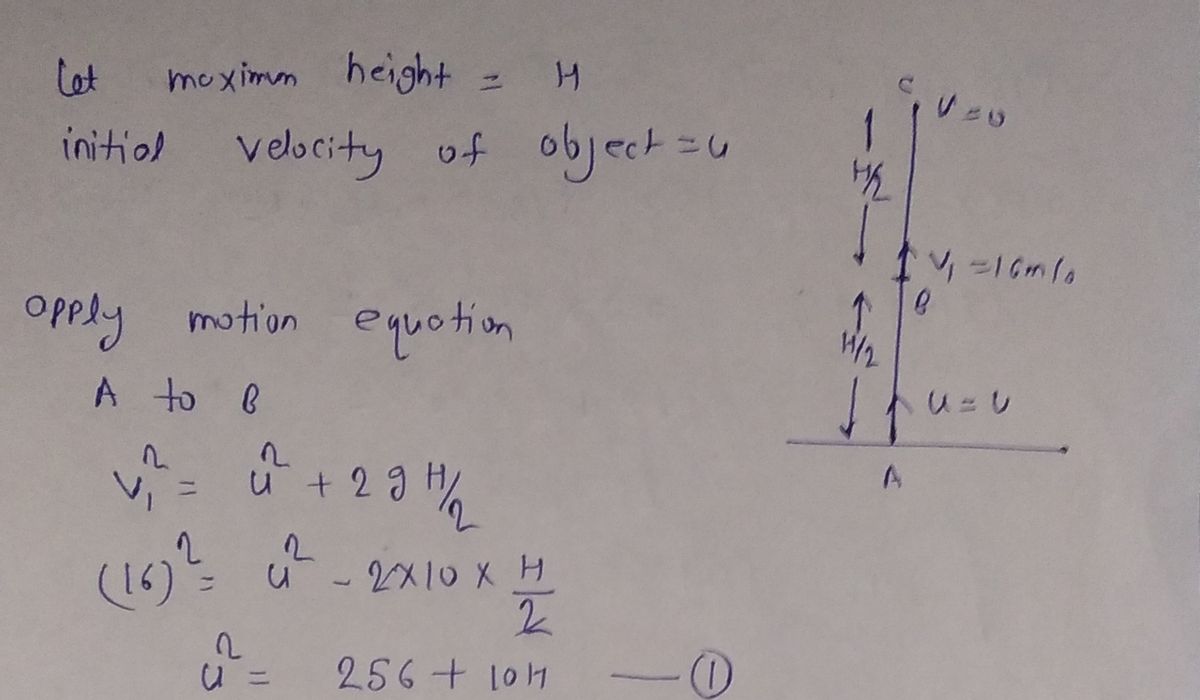 Let maximum height = H
initial velocity of object = u
apply motion equation
A to B
v₁² = u² + 2 g H/2
(16)² = u² - 2×10 × H/2
u² = 256 + 10H — ①
C
V = 0
H/2
V₁ = 16m/s
B
H/2
u = u
A